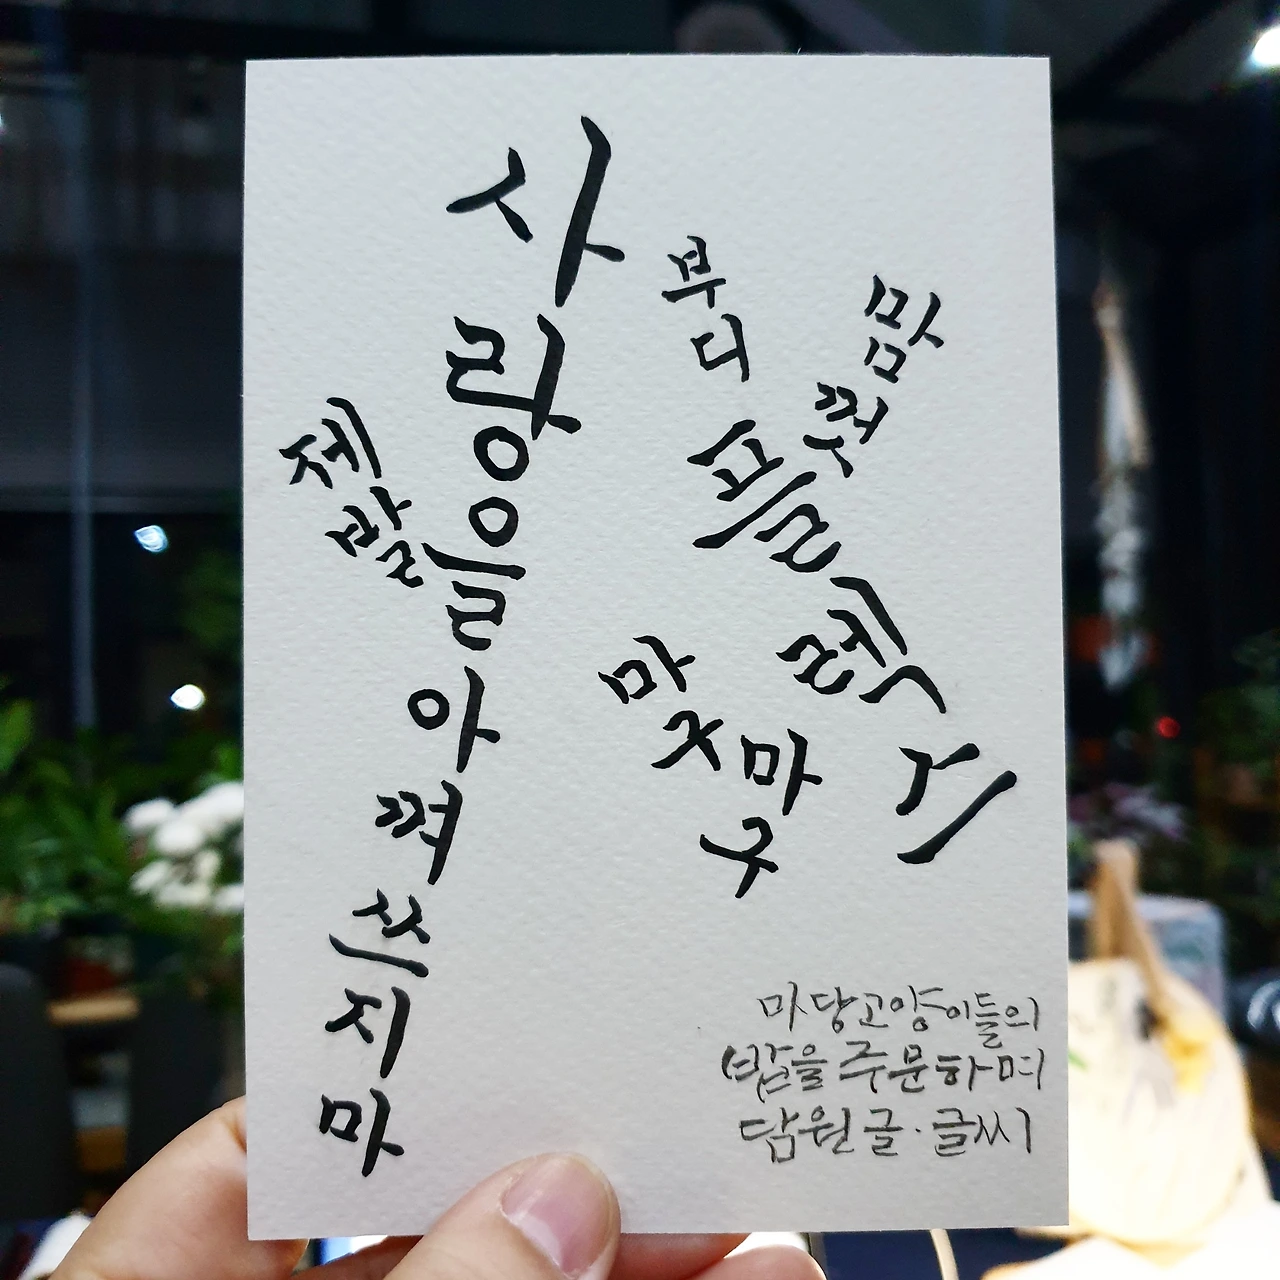 사랑을아껴쓰지마
제발
부디
맘껏
플렉스
마구
마구
마당고양이들의
밥을 주문하며
담원 글·글씨